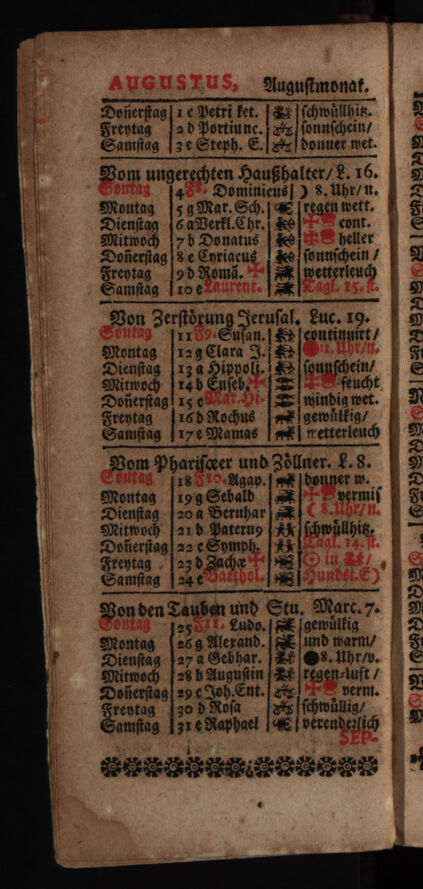 AUGUSTUS, Augustmonat.
Doñerstag 1 c Petri ket. schwüllhitz.
Freytag 2 d Portiunc. sonnschein/
Samstag 3 e Steph. E. donner wet.
Vom ungerechten Haußhalter/ L. 16.
Sontag 4 F8. Dominicus ☽ 8. Uhr/n.
Montag 5 g Mar. Sch. regen wett.
Dienstag 6 a Verkl. Chr. cont.
Mitwoch 7 b Donatus heller
Doñerstag 8 c Cyriacus sonnschein/
Freytag 9 d Romã. wetterleuch
Samstag 10 e Laurent. Tagl. 15. st.
Von Zerstörung Jerusal. Luc. 19.
Sontag 11 F9. Susan. continuirt/
Montag 12 g Clara J. Uhr/n.
Dienstag 13 a Hippoli. sonnschein/
Mitwoch 14 b Euseb. feucht
Doñerstag 15 c Mar. Hi- windig wet.
Freytag 16 d Rochus gewülkig/
Samstag 17 e Mamas wetterleuch
Vom Pharisæer und Zöllner. L. 8.
Sontag 18 F10. Agap. donner w.
Montag 19 g Sebald vermis
Dienstag 20 a Bernhar ☾ 8. Uhr/n.
Mitwoch 21 b Patern9 schwüllhitz.
Doñerstag 22 c Symph. Tagl. 14. st.
Freytag 23 d Zachæ ☉ in
Samstag 24 e Barthol. Hundst. E)
Von den Tauben und Stu. Marc. 7.
Sontag 25 F11. Ludo. gewülkig
Montag 26 g Alexand. und warm/
Dienstag 27 a Gebhar. ●8. Uhr/v.
Mitwoch 28 b Augustin regen-luft/
Doñerstag 29 c Joh. Ent. verm.
Freytag 30 d Rosa schwüllig/
Samstag 31 e Raphael verenderlich
SEP-